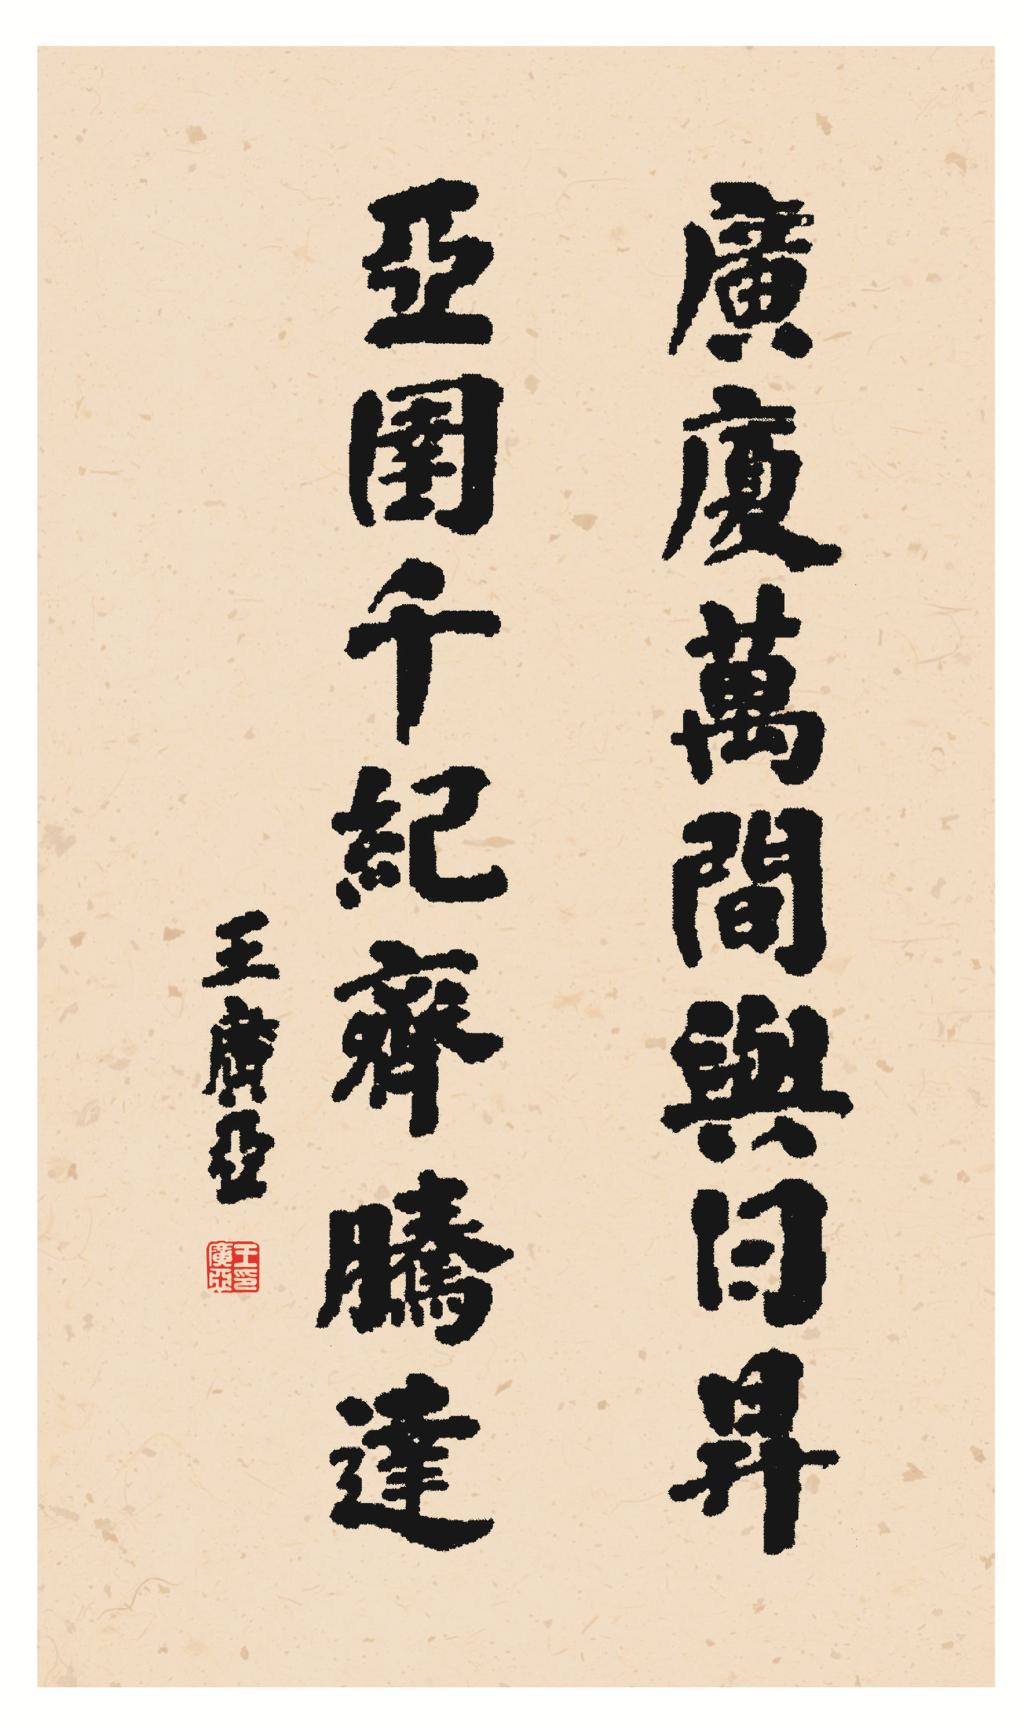 廣廈萬間與日昇
亞千紀齊騰達
王廣亞
王印
廣亞